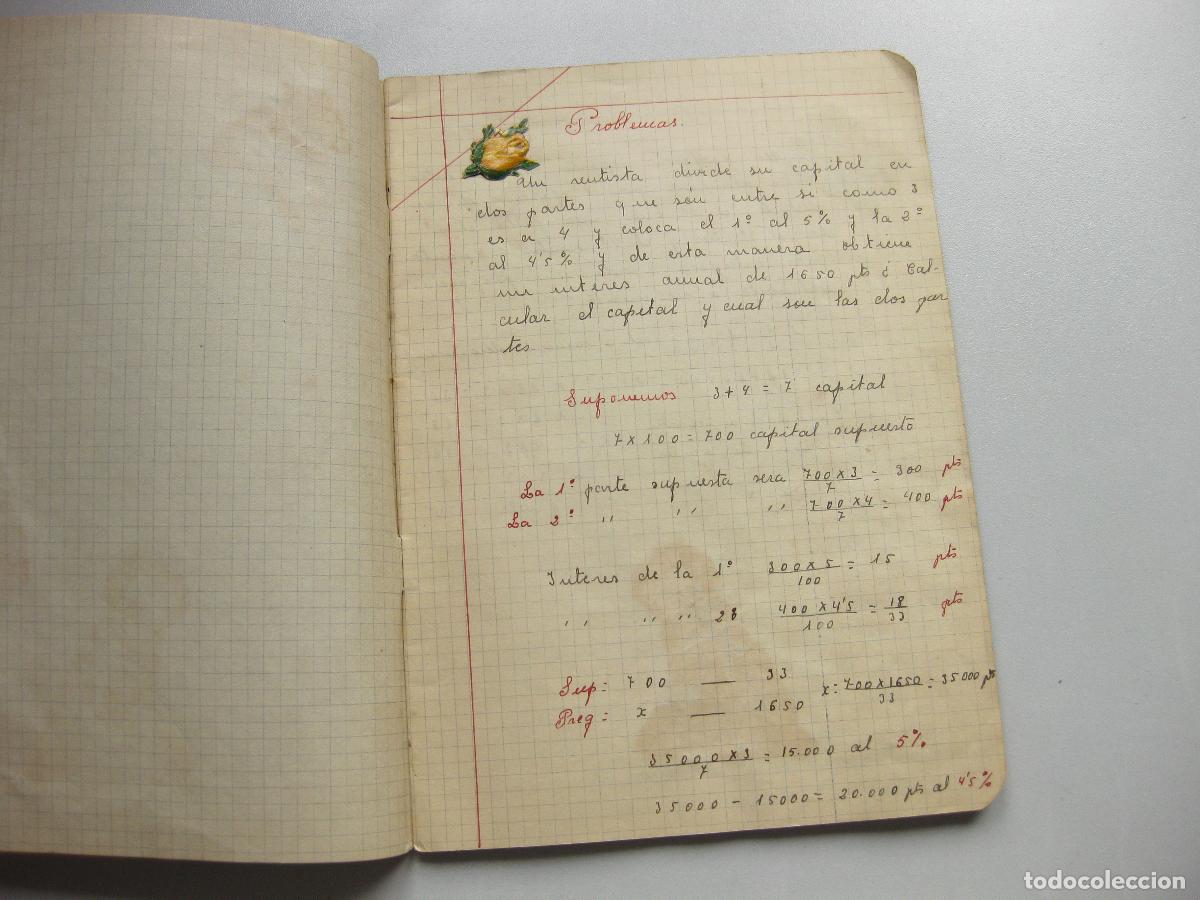 Problemas.
Un rentista divide su capital en
dos partes que són entre si como 3
es a 4 y coloca el 1º al 5% y la 2º
al 4'5% y de esta manera obtiene
un interes anual de 1650 pts ¿ Cal-
cular el capital y cual son las dos par
tes
Suponemos 3+4 = 7 capital
7 x 100 = 700 capital supuesto
La 1º parte supuesta sera 700 x 3 / 7 = 300 pts
La 2º " " " 700 x 4 / 7 = 400 pts
Interes de la 1º 300 x 5 / 100 = 15 pts
" " " 2ª 400 x 4'5 / 100 = 18 / 33 pts
Sup = 700 — 33
Preg = x — 1650 x = 700 x 1650 / 33 = 35000 pts
35000 x 3 / 7 = 15.000 al 5%
35000 - 15000 = 20.000 pts al 4'5%
todocoleccion